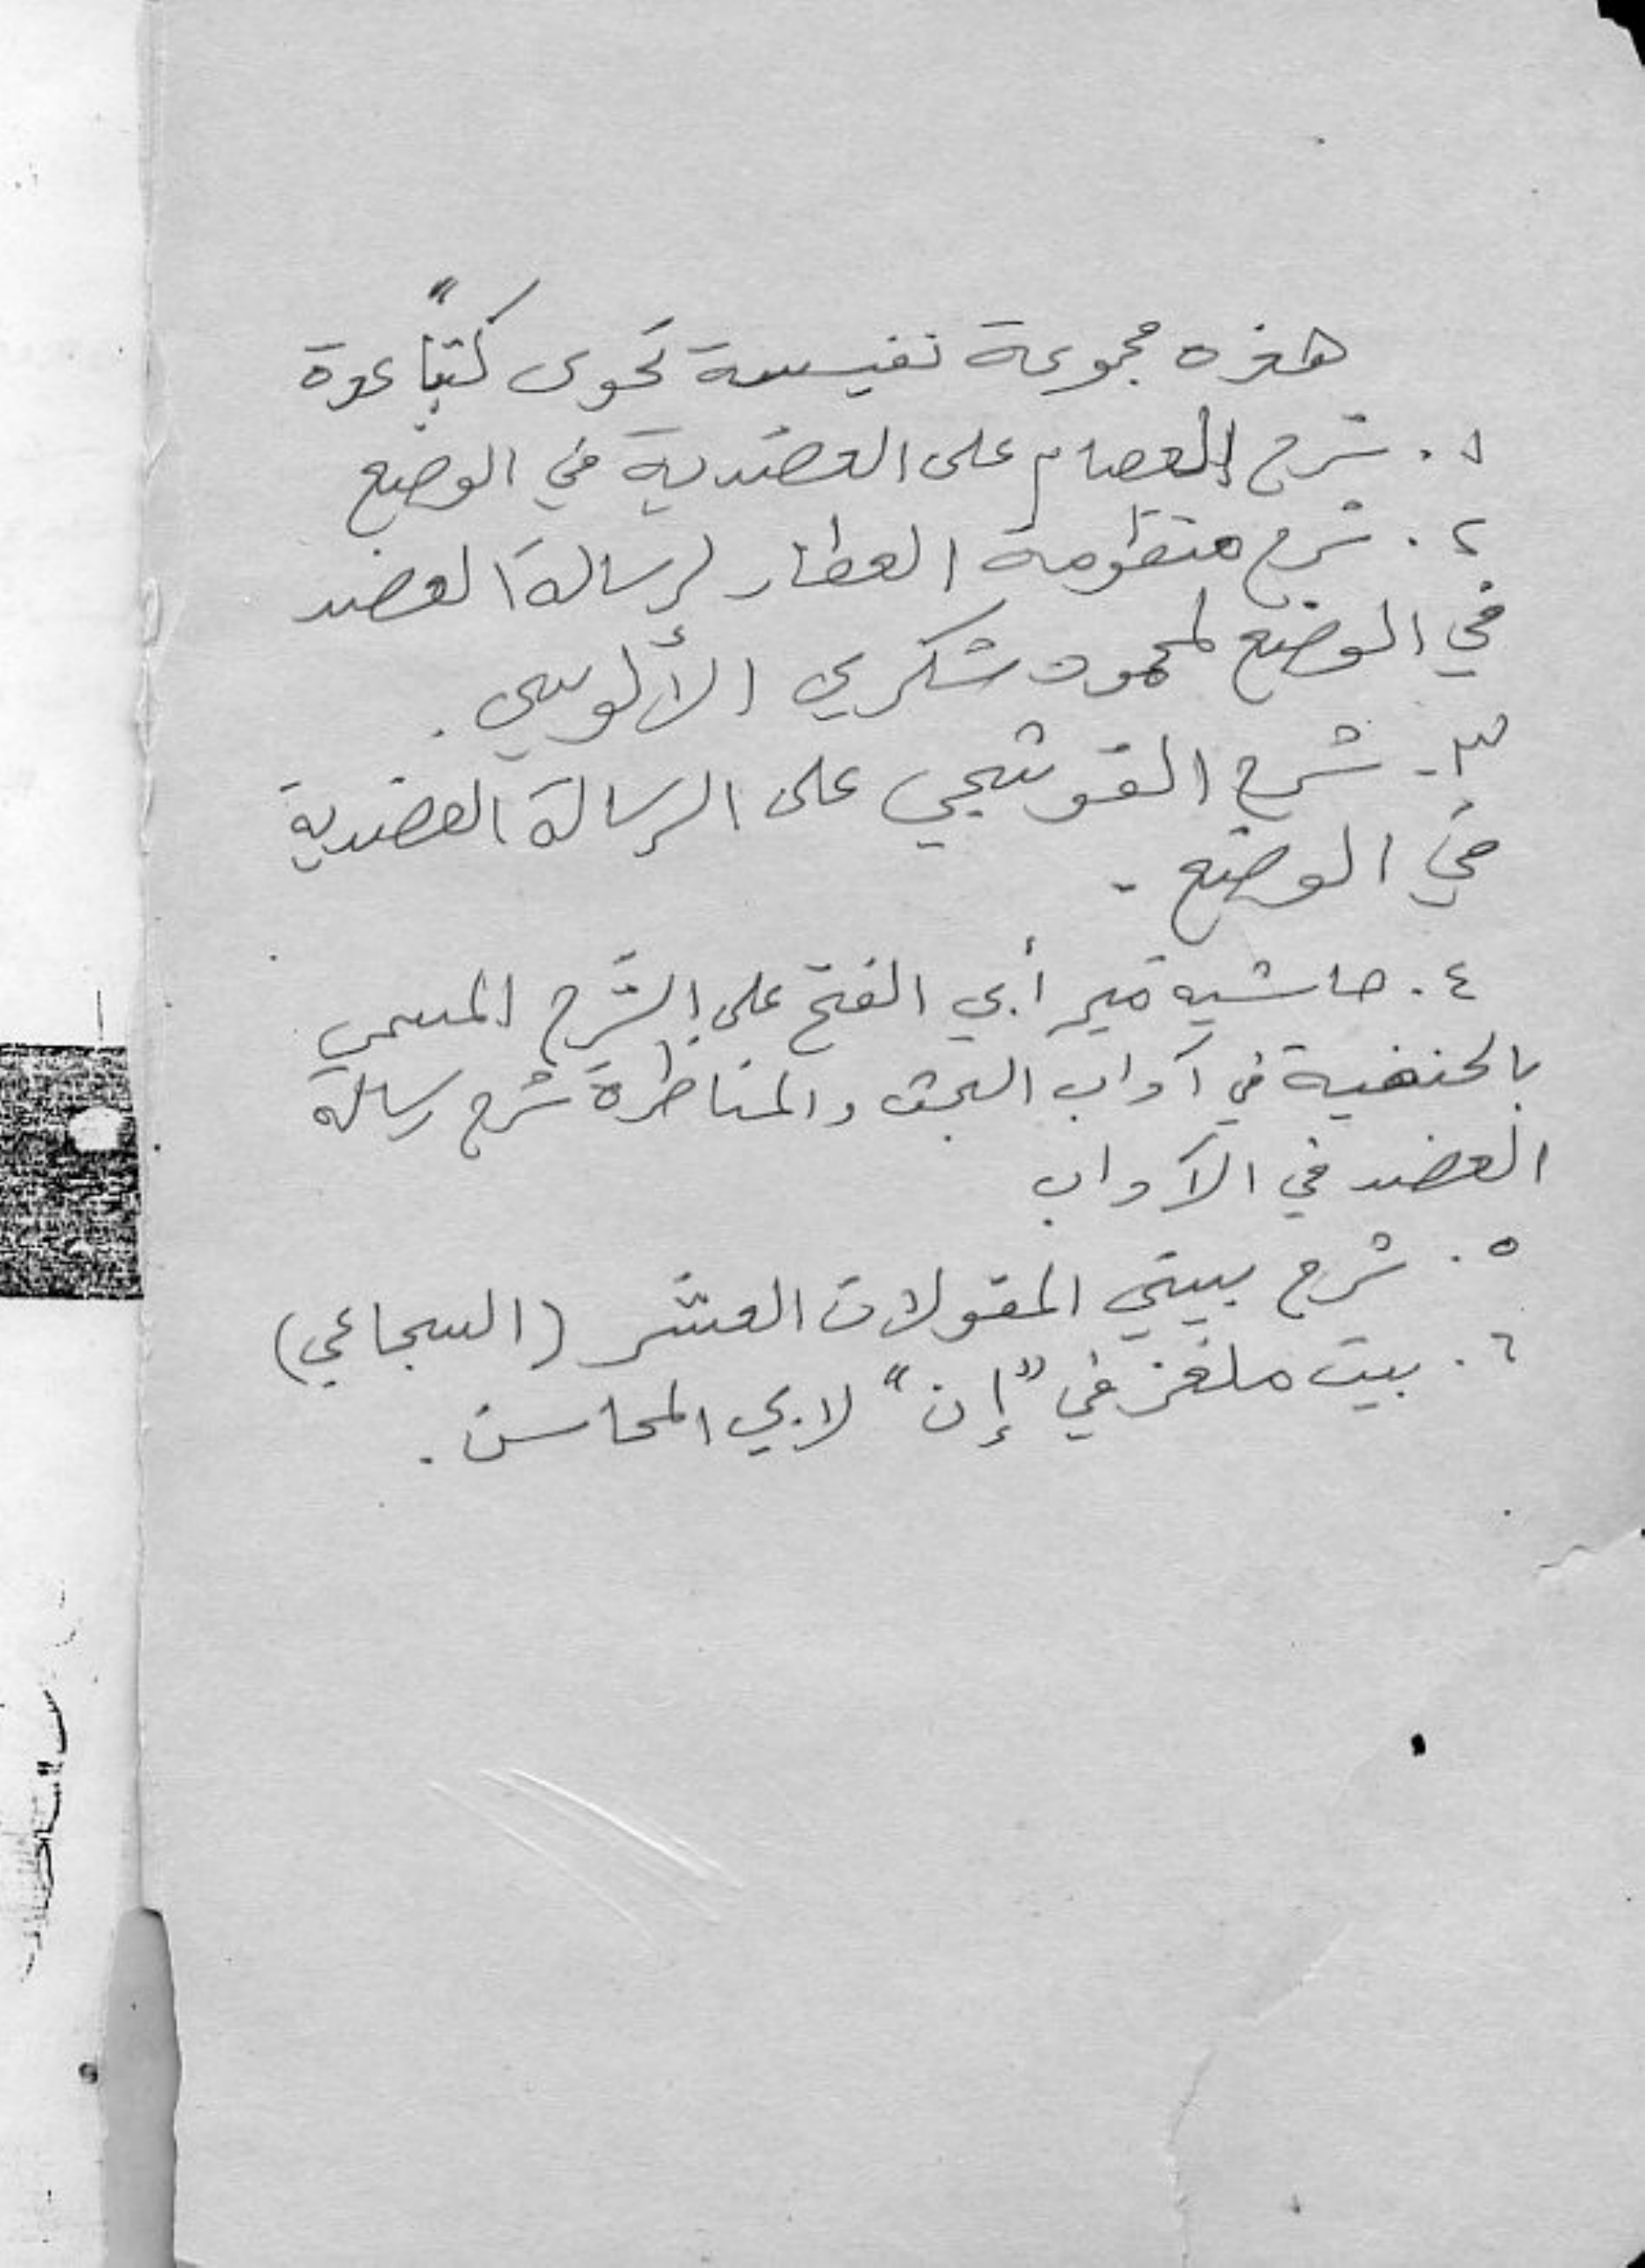 هذه مجموعة نفيسة تحوى كتباً عدة
١. شرح العصام على العضدية في الوضع
٢. شرح منظومة العطار لرسالة العضد
في الوضع لمحمود شكري الألوسي.
٣. شرح القوشجي على الرسالة العضدية
في الوضع.
٤. حاشية مير أبي الفتح على الشرح المسمى
بالحنفية في آداب البحث والمناظرة شرح رسالة
العضد في الآداب
٥. شرح بيتي المقولات العشر (السجاعي)
٦. بيت ملغز في "إن" لابي المحاسن.